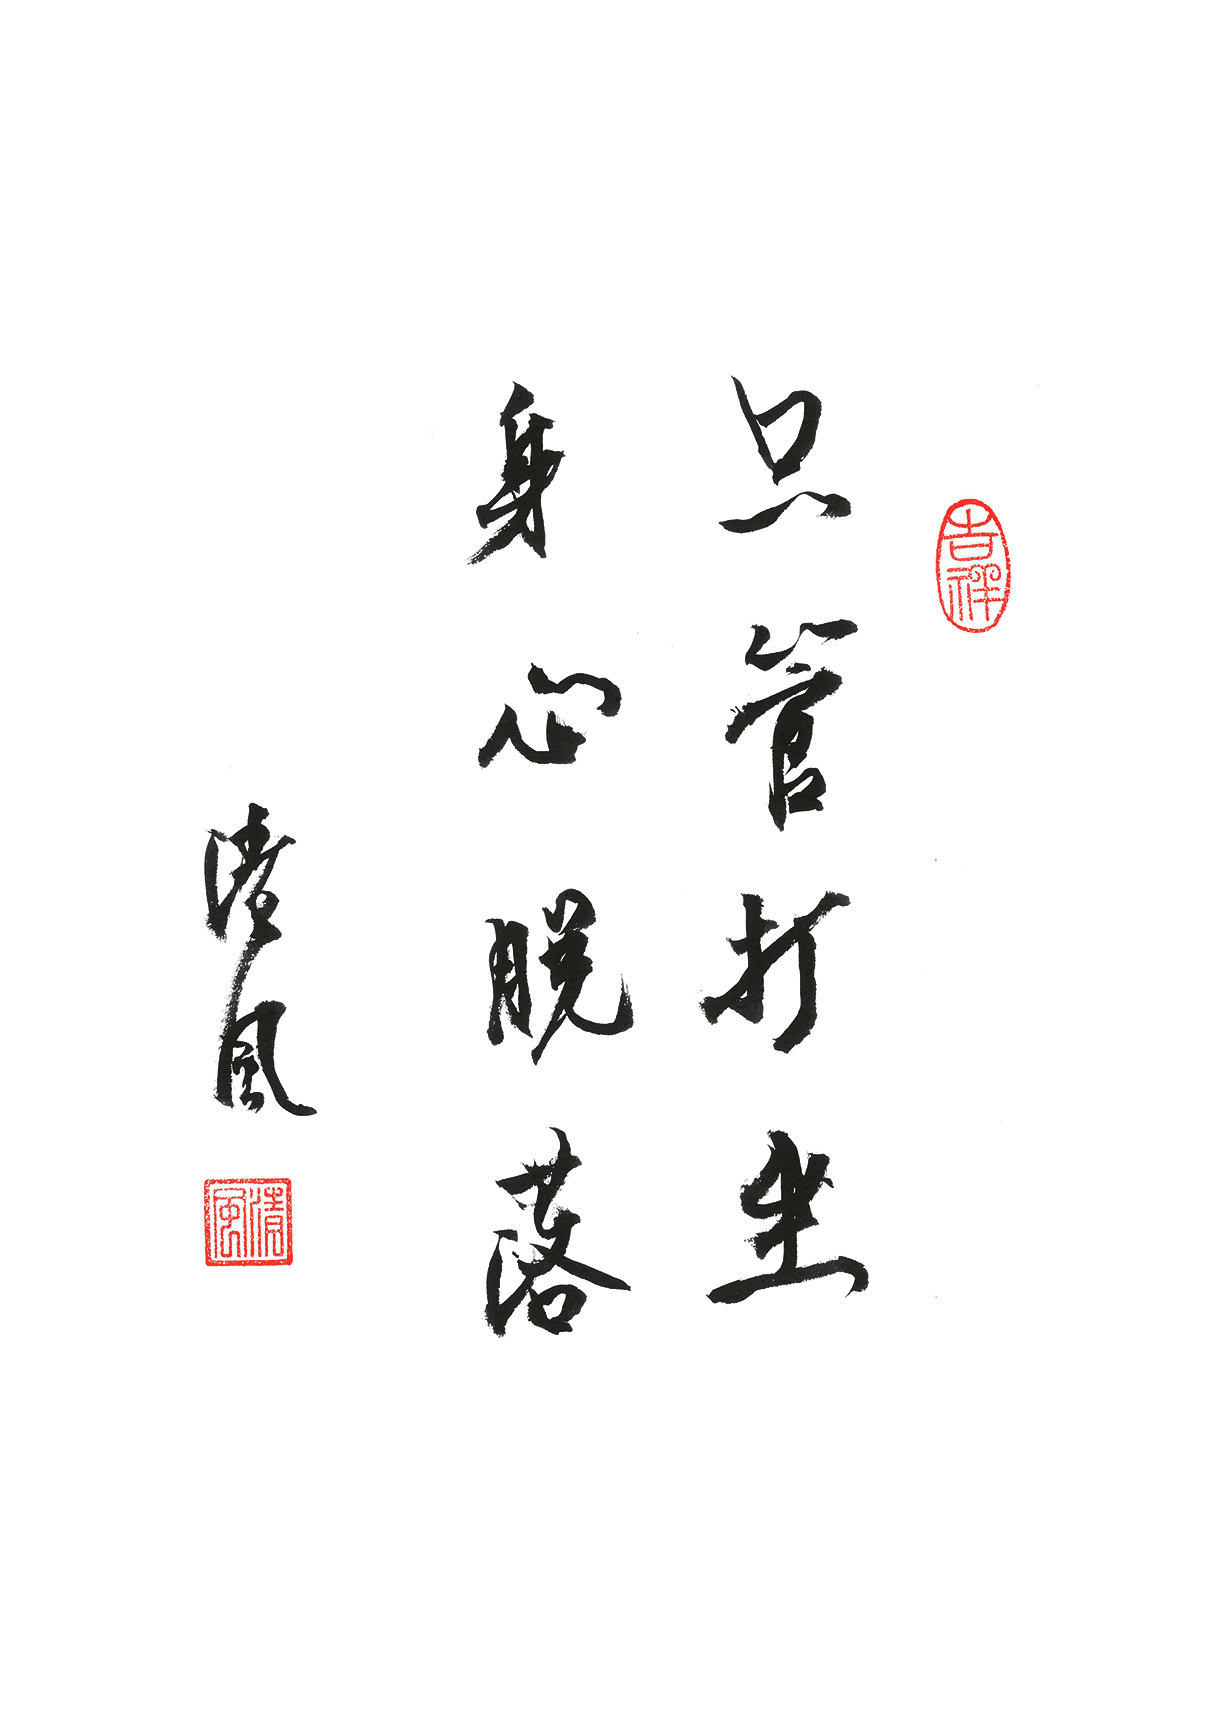 吉祥
只管打坐
身心脱落
清风
清風